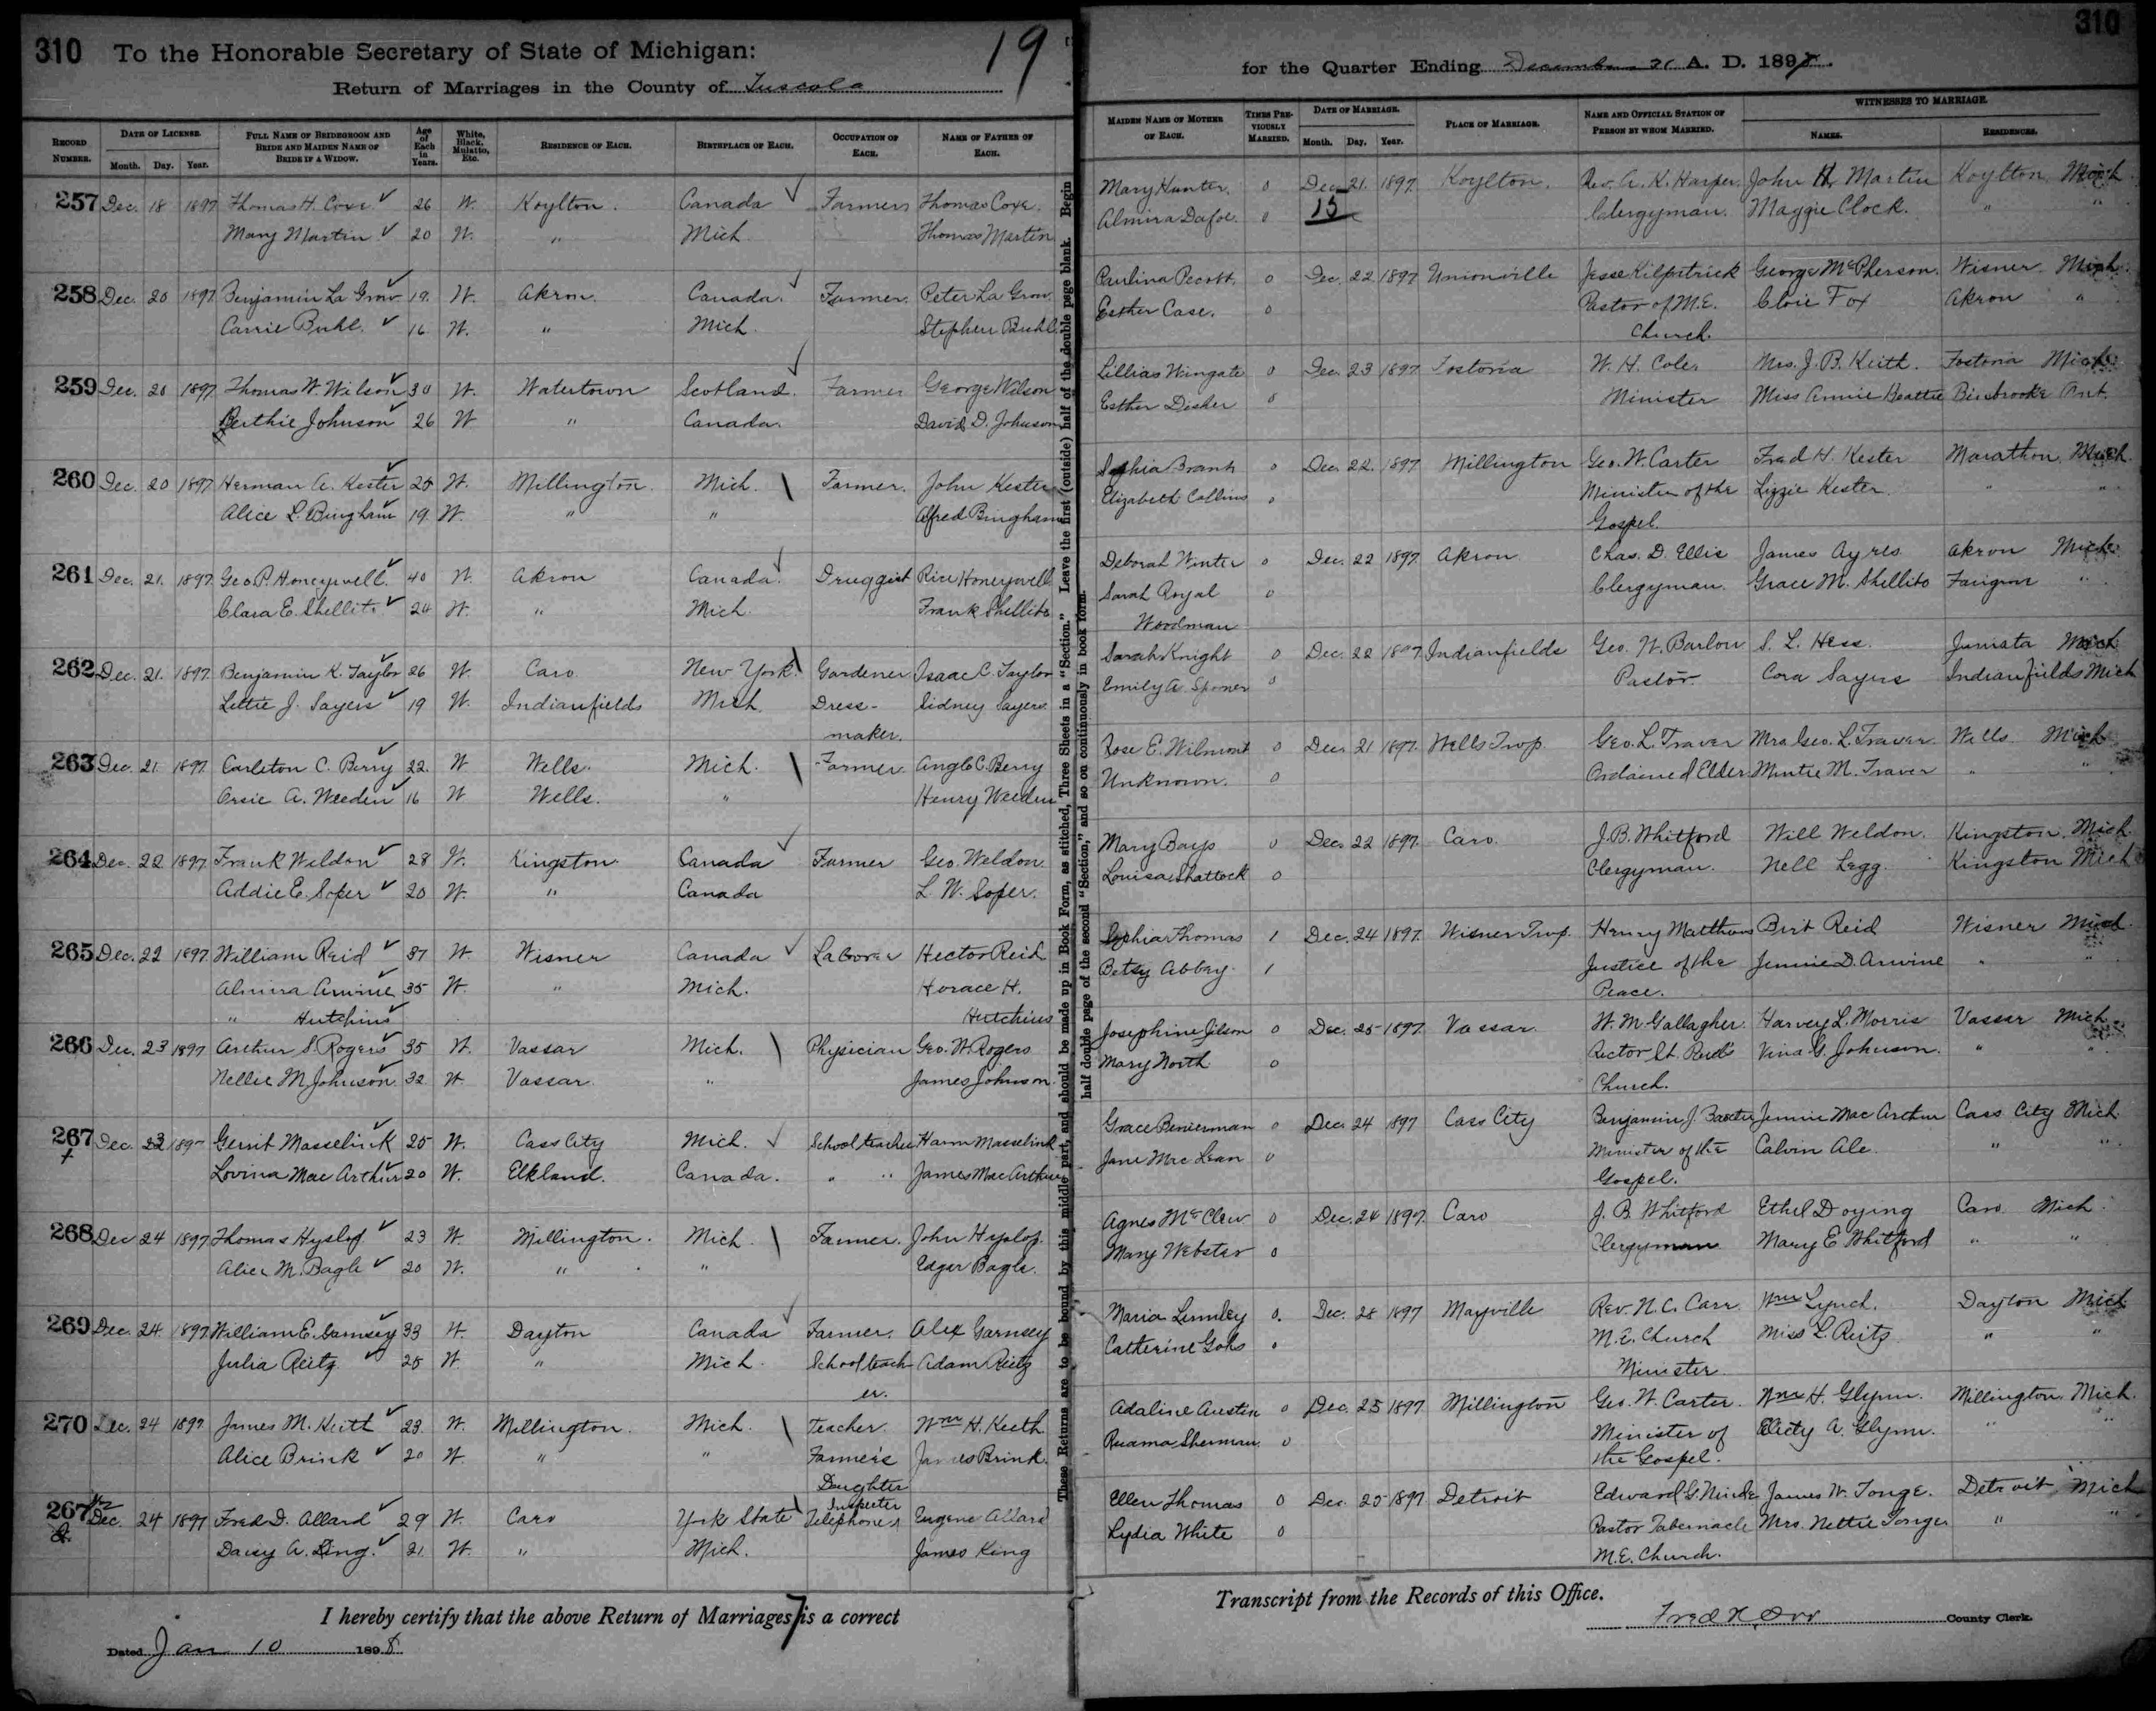 310 To the Honorable Secretary of State of Michigan: 19
Return of Marriages in the County of Tuscola
RECORD NUMBER. DATE OF LICENSE. Month. Day. Year. FULL NAME OF BRIDEGROOM AND BRIDE AND MAIDEN NAME OF BRIDE IF A WIDOW. Age of Each in Years. White, Black, Mulatto, Etc. RESIDENCE OF EACH. BIRTHPLACE OF EACH. OCCUPATION OF EACH. NAME OF FATHER OF EACH.
257 Dec. 18 1897 Thomas H. Coxe 26 W. Koylton. Canada Farmer Thomas Coxe.
Mary Martin 20 W. " Mich. Thomas Martin
258 Dec. 20 1897 Benjamin La Grow 19. W. Akron. Canada. Farmer. Peter La Grow.
Carrie Buhl. 16 W. " Mich. Stephen Buhl.
259 Dec. 20 1897 Thomas W. Wilson 30 W. Watertown Scotland. Farmer George Wilson
Berthie Johnson 26 W " Canada. David D. Johnson
260 Dec. 20 1897 Herman A. Kester 25 W. Millington. Mich. Farmer. John Kester
Alice L. Bingham 19. W. " " Alfred Bingham
261 Dec. 21. 1897 Geo. P. Honeywell. 40 W. Akron Canada. Druggist Rice Honeywell
Clara E. Shellito 24 W. " Mich. Frank Shellito
262 Dec. 21. 1897. Benjamin K. Taylor 26 W. Caro New York. Gardener Isaac C. Taylor
Lettie J. Sayers 19 W. Indianfields Mich. Dress- Sidney Sayers
maker.
263 Dec. 21. 1897 Carleton C. Berry 22. W Wells. Mich. Farmer. C. Berry
A. Weeden 16 W Wells. " Henry Weeden
264 Dec. 22 1897 Frank Weldon 28 W. Kingston. Canada Farmer Geo. Weldon.
Addie E. Soper 20 W. " Canada L. W. Soper.
265 Dec. 22 1897 William Reid 37 W Wisner Canada Laborer Hector Reid
Almira Arwine 35 W. " Mich. Horace H.
" Hutchins Hutchins
266 Dec. 23 1897 Arthur S. Rogers 35 W. Vassar Mich. Physician Geo. W. Rogers
Nellie M. Johnson. 32 W Vassar. " James Johnson.
267 Dec. 23 189 Gerrit Masselink 25 W. Cass City Mich. School teacher Harm Masselink
+ Lovina Mac Arthur 20 W. Elkland. Canada. " " James Mac Arthur
268 Dec 24 1897 Thomas Hyslop 23 W. Millington. Mich. Farmer. John Hyslop.
Alice M. Bagle 20 W. " " Edgar Bagle.
269 Dec. 24. 1897. William E. Garnsey 33 W. Dayton Canada Farmer. Alex Garnsey
Julia Reitz. 25 W. " Mich. School teach Adam Reitz
er.
270 Dec. 24 1897. James M. Keith 23. W. Millington. Mich. Teacher. Wm H. Keith.
Alice Brink 20 W. " " Farmer's James Brink.
Daughter
267½ Dec. 24 1897 Fred D. Allard 29 W. Caro York State Inspector Telephones Eugene Allard
Daisy A. King. 21. W. " Mich. James King
I hereby certify that the above Return of Marriages is a correct
Dated Jan 10 1898
These Returns are to be bound by this middle part, and should be made up in Book Form, as stitched, Three Sheets in a "Section." Leave the first (outside) half of the double page blank. Begin
half double page of the second "Section," and so on continuously in book form.
310
for the Quarter Ending December 31 A. D. 1897.
MAIDEN NAME OF MOTHER OF EACH. TIMES PREVIOUSLY MARRIED. DATE OF MARRIAGE. Month. Day. Year. PLACE OF MARRIAGE. NAME AND OFFICIAL STATION OF PERSON BY WHOM MARRIED. WITNESSES TO MARRIAGE. NAMES. RESIDENCES.
Mary Hunter. 0 Dec. 21. 1897. Koylton. Rev. A. K. Harper. John H. Martin Koylton, Mich.
Almira Dafoe. 0 15 Clergyman. Maggie Clock. " "
Paulina 0 Dec. 22 1897 Unionville Jesse Kilpatrick George McPherson. Wisner Mich.
Esther Case. 0 Pastor of M.E. Cloie Fox Akron "
Church.
Lillias Wingate 0 Dec. 23 1897. Fostoria W. H. Coles Mrs. J. B. Keith. Fostoria Mich.
Esther Disher 0 Minister Miss Annie Beattie Binbrooke Ont.
Sophia Brant 0 Dec. 22. 1897 Millington Geo. W. Carter Fred H. Kester Marathon, Mich.
Elizabeth Collins 0 Minister of the Lizzie Kester. " "
Gospel.
Deborah Winter 0 Dec. 22 1897. Akron. Chas. D. Ellis James Ayres Akron Mich.
Sarah Royal 0 Clergyman. Grace M. Shellito Fairgrove "
Woodman
Sarah Knight 0 Dec. 22 1897 Indianfields Geo. N. Barlow S. L. Hess. Juniata Mich.
Emily A. Spooner 0 Pastor Cora Sayers Indianfields Mich
Rose E. Wilmont 0 Dec. 21 1897. Wells Twp. Geo. L. Traver Mrs. Geo. L. Traver. Wells. Mich
Unknown. 0 Ordained Elder. Mintie M. Traver " "
Mary Bays 0 Dec. 22 1897. Caro. J. B. Whitford Will Weldon. Kingston, Mich.
Louisa Shattock 0 Clergyman. Nell Legg. Kingston Mich
Sophia Thomas 1 Dec. 24 1897. Wisner Twp. Henry Matthews Birt Reid Wisner Mich.
Betsy Abbey. 1 Justice of the Jennie D. Arwine " "
Peace.
Josephine Jilson 0 Dec. 25 1897. Vassar. W. M. Gallagher. Harvey L. Morris Vassar Mich.
Mary North 0 Rector St. Vina G. Johnson. " "
Church.
Grace 0 Dec. 24 1897 Cass City Benjamin J. Baxter Jennie Mac Arthur Cass City Mich
Jane Mac Lean 0 Minister of the Calvin Ale. " "
Gospel.
Agnes McClew 0 Dec. 24 1897. Caro J. B. Whitford Ethel Doying Caro Mich.
Mary Webster 0 Clergyman Mary E Whitford " "
Maria Lumley 0. Dec. 28 1897 Mayville Rev. N. C. Carr Wm Lynch. Dayton Mich
Catherine Gohs 0 M.E. Church Miss L. Reitz " "
Minister
Adaline Austin 0 Dec. 25 1897 Millington Geo. W. Carter. Wm H. Glynn. Millington, Mich.
Ruama Sherman. 0 Minister of A. Glynn. " "
the Gospel.
Ellen Thomas 0 Dec. 25 1897 Detroit Edward G. James W. Tonge. Detroit, Mich
Lydia White 0 Pastor Tabernacle Mrs. Nettie Tonge " "
M.E. Church.
Transcript from the Records of this Office.
Fred N. Orr County Clerk.